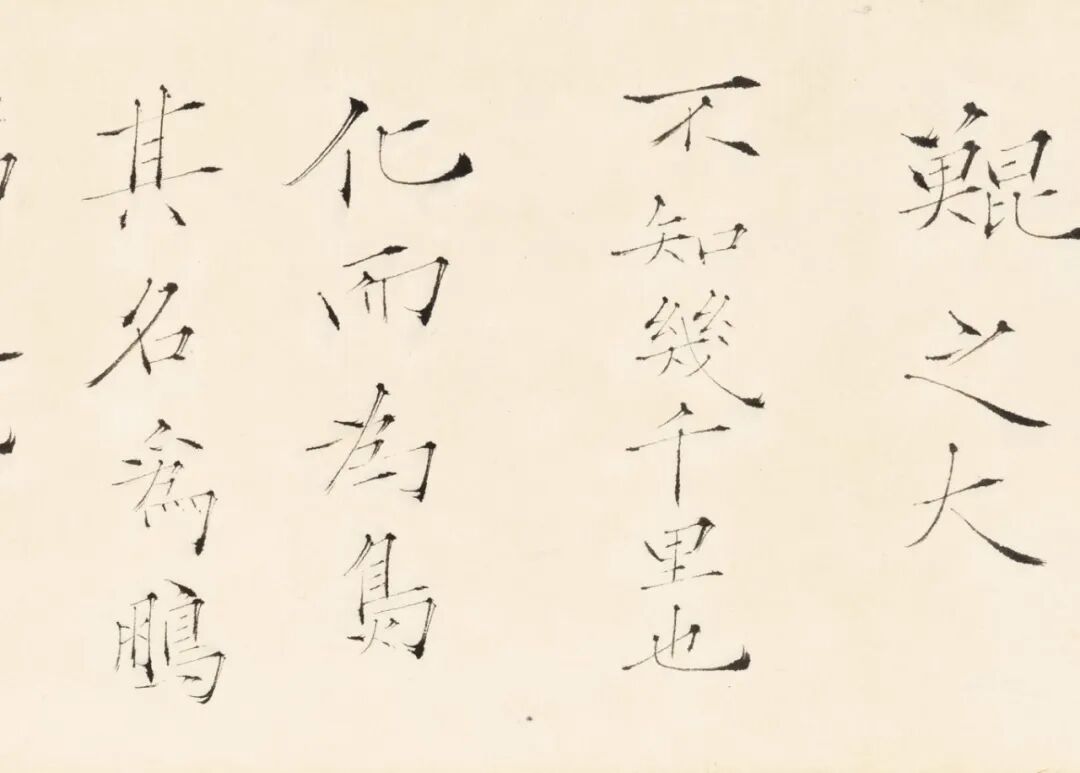 鯤之大
不知幾千里也
化而為鳥
其名為鵬